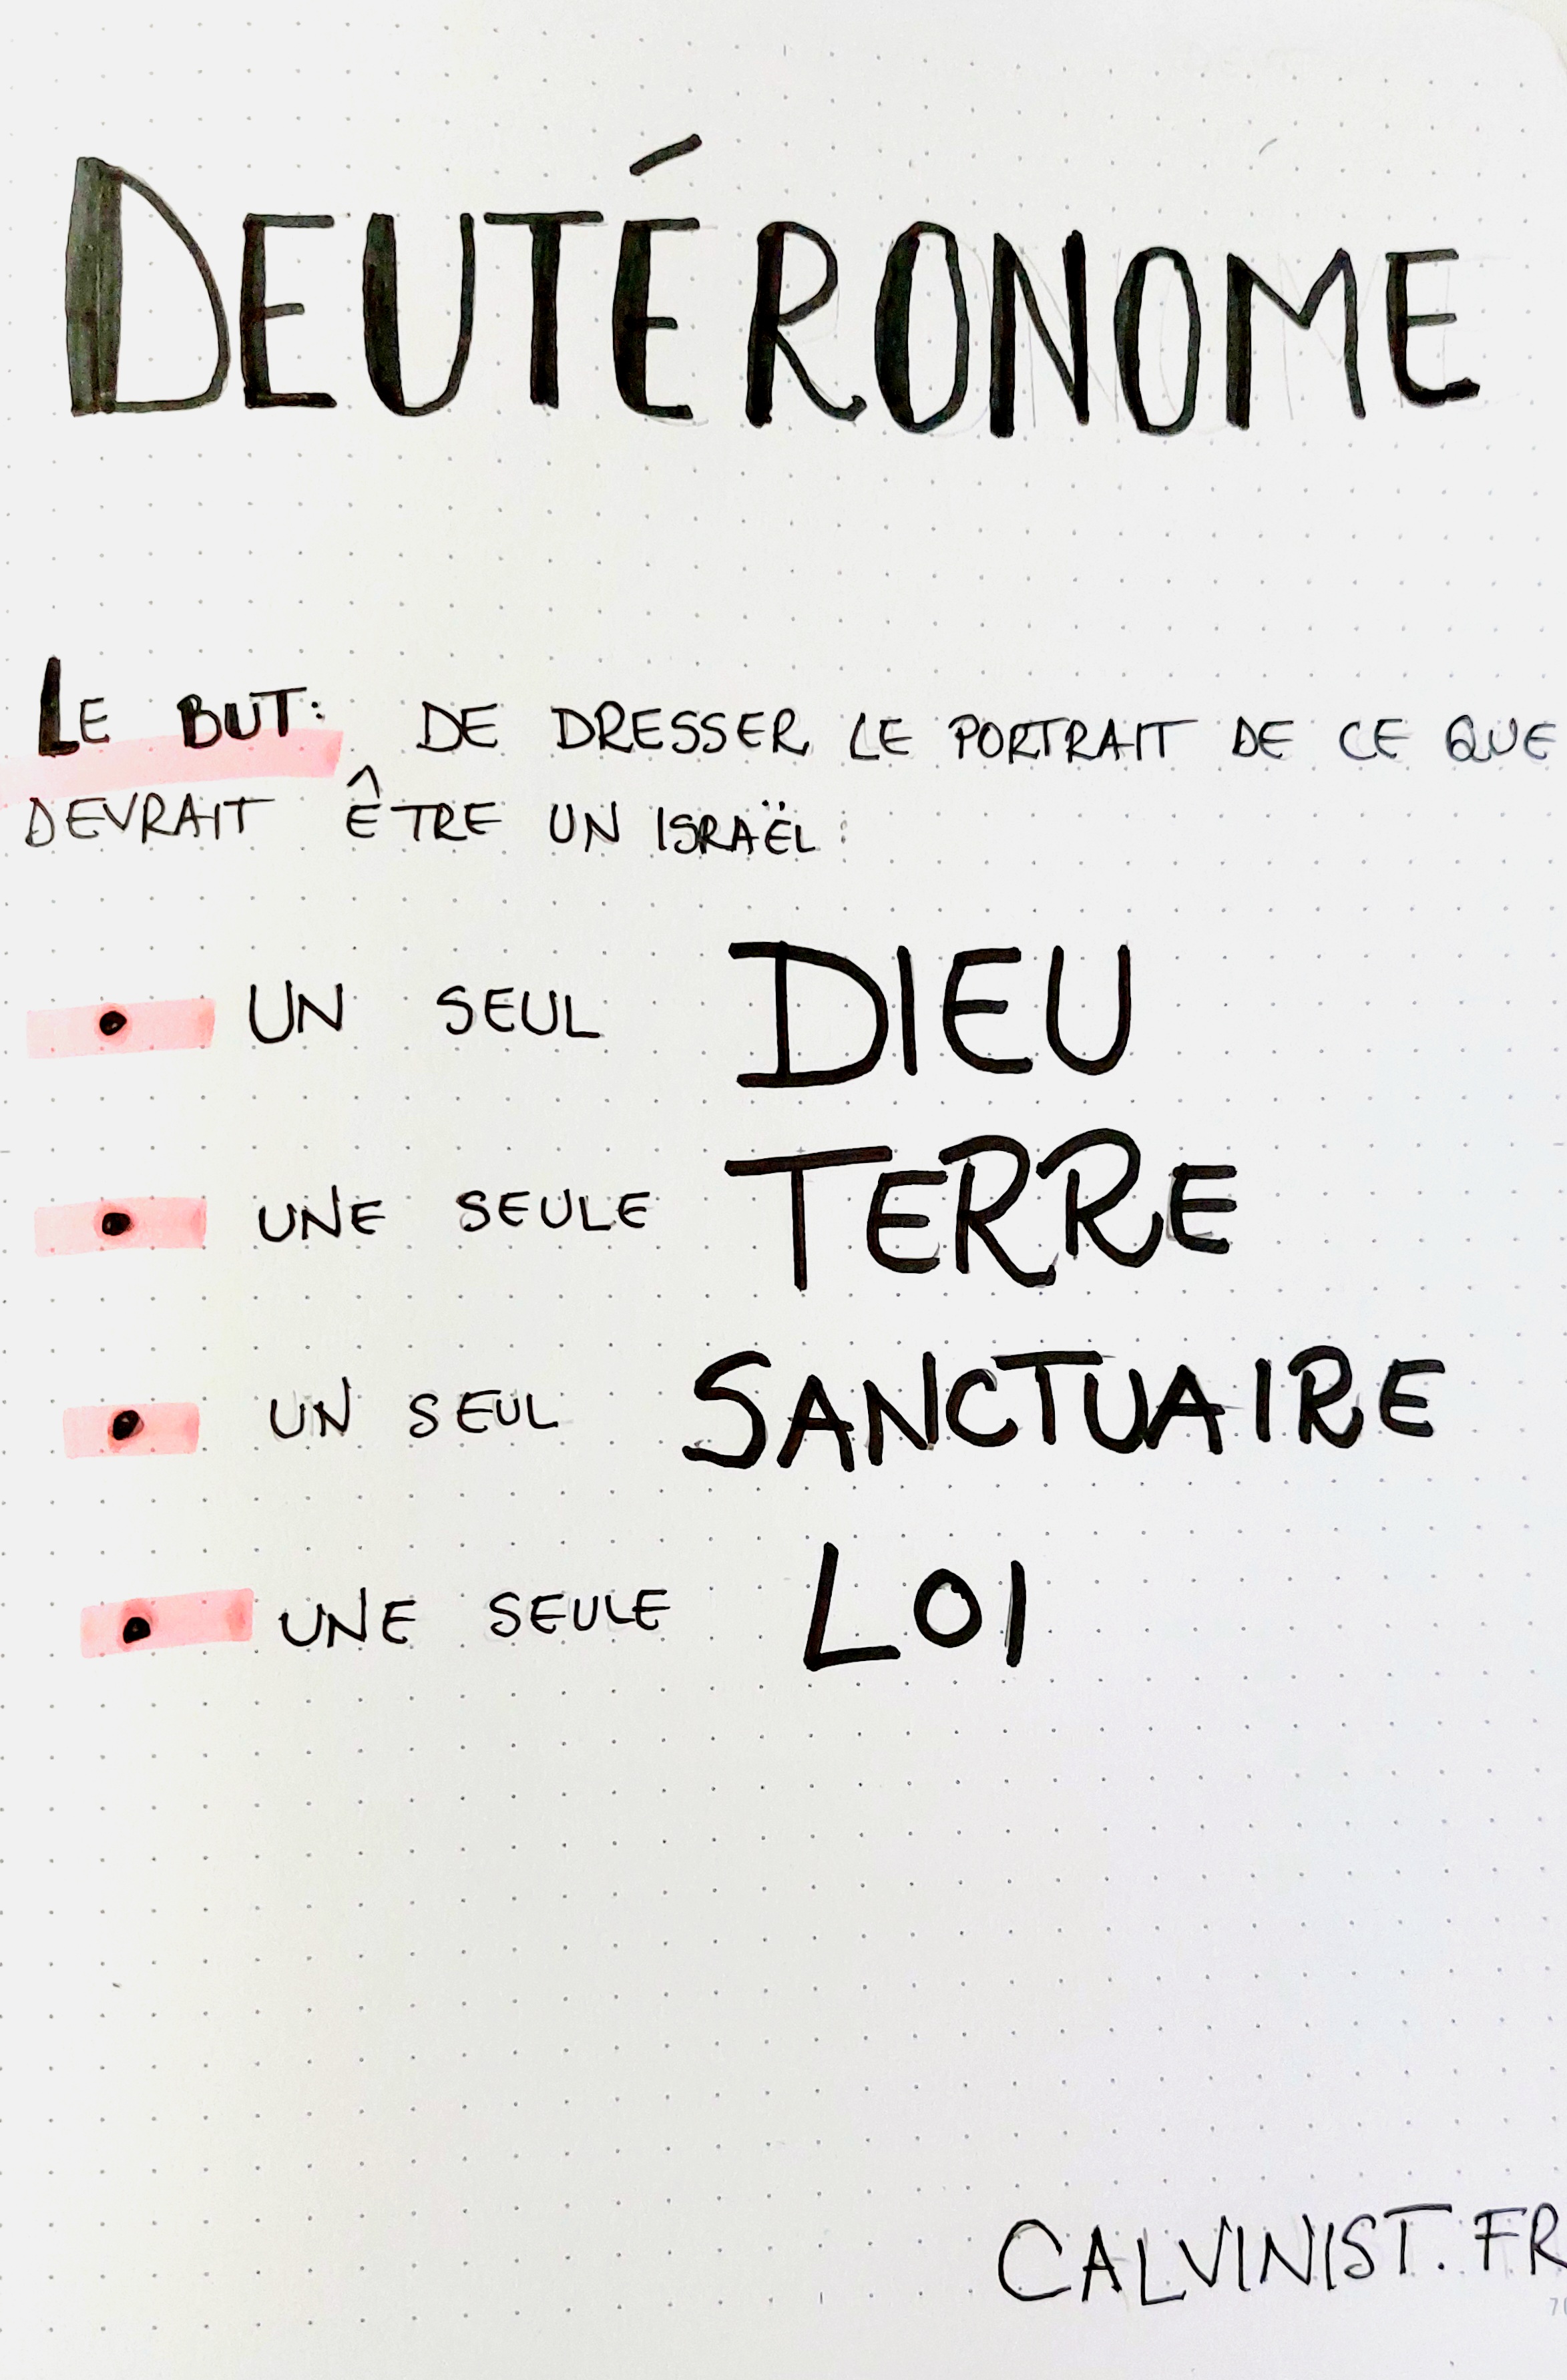 DEUTÉRONOME
LE BUT: DE DRESSER LE PORTRAIT DE CE QUE
DEVRAIT ÊTRE UN ISRAËL:
• UN SEUL DIEU
• UNE SEULE TERRE
• UN SEUL SANCTUAIRE
• UNE SEULE LOI
CALVINIST.FR